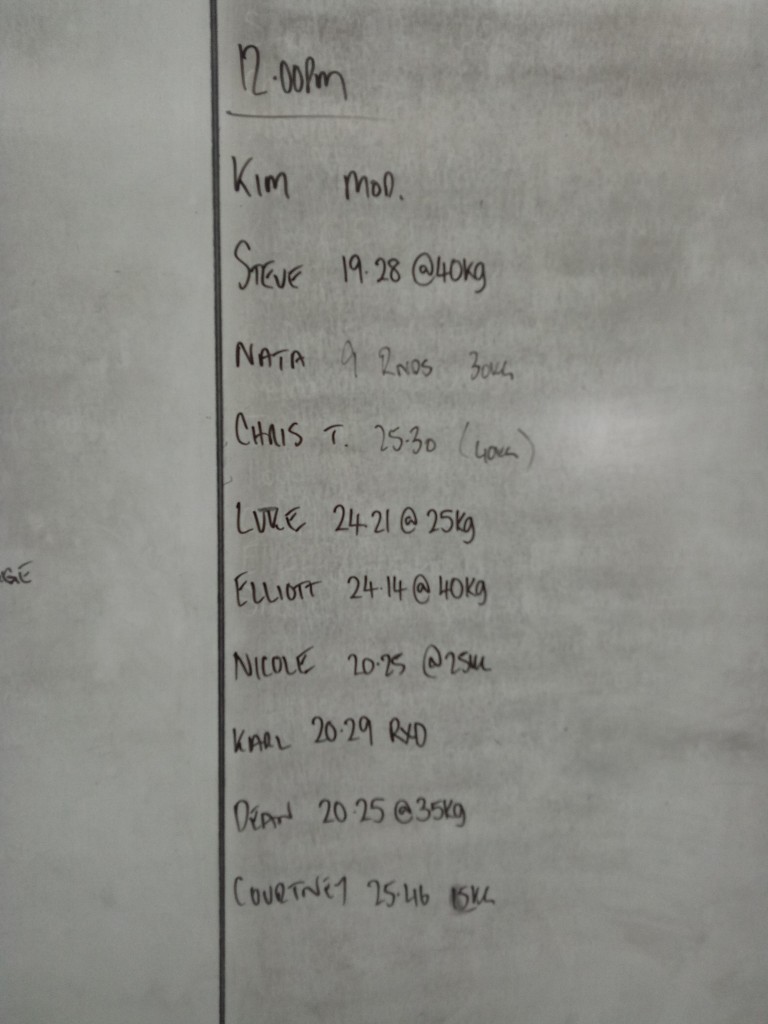 12.00PM
KIM MOD.
STEVE 19.28 @40kg
NATA 9 RNDS 30KG
CHRIS T. 25.30 (40KG)
LUKE 24.21 @ 25kg
GE
ELLIOTT 24.14 @ 40kg
NICOLE 20.25 @25KG
KARL 20.29 RXD
DEAN 20.25 @35kg
COURTNEY 25.46 15KG